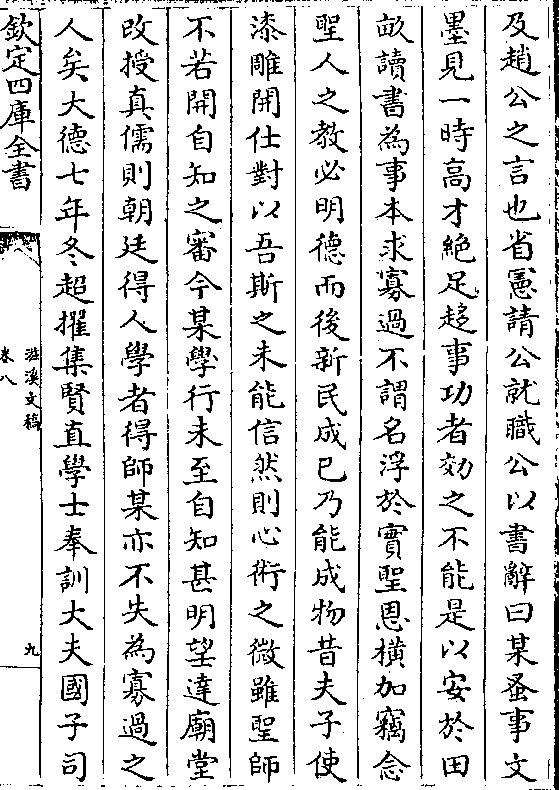 及趙公之言也省憲請公就職公以書辭曰某蚤事文
墨見一時高才絶足趍事功者効之不能是以安於田
畝讀書為事本求寡過不謂名浮於實聖恩横加竊念
聖人之教必明德而後新民成已乃能成物昔夫子使
漆雕開仕對以吾斯之未能信然則心術之微雖聖師
不若開自知之審今某學行未至自知甚明望達廟堂
改授真儒則朝廷得人學者得師某亦不失為寡過之
人矣大德七年冬超擢集賢直學士奉訓大夫國子司
欽定四庫全書
滋溪文稿
卷八
九